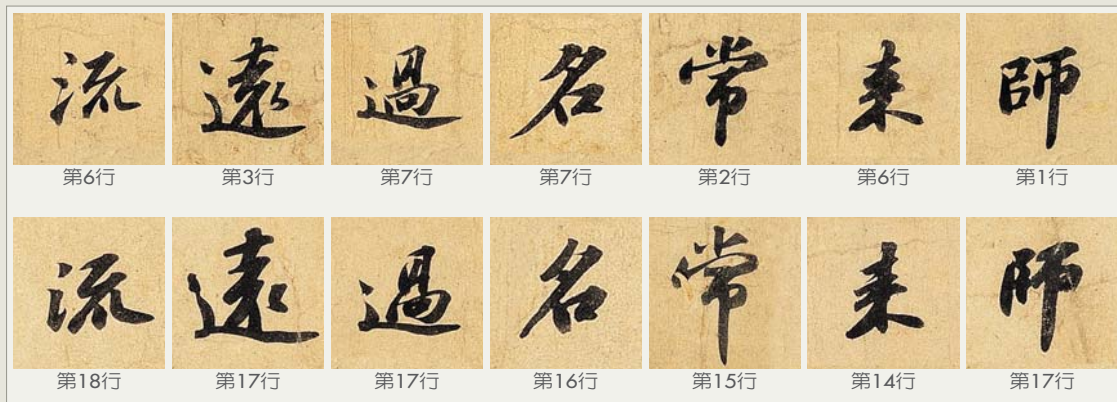 流 遠 過 名 常 来 師
第6行 第3行 第7行 第7行 第2行 第6行 第1行
流 遠 過 名 常 来 師
第18行 第17行 第17行 第16行 第15行 第14行 第17行